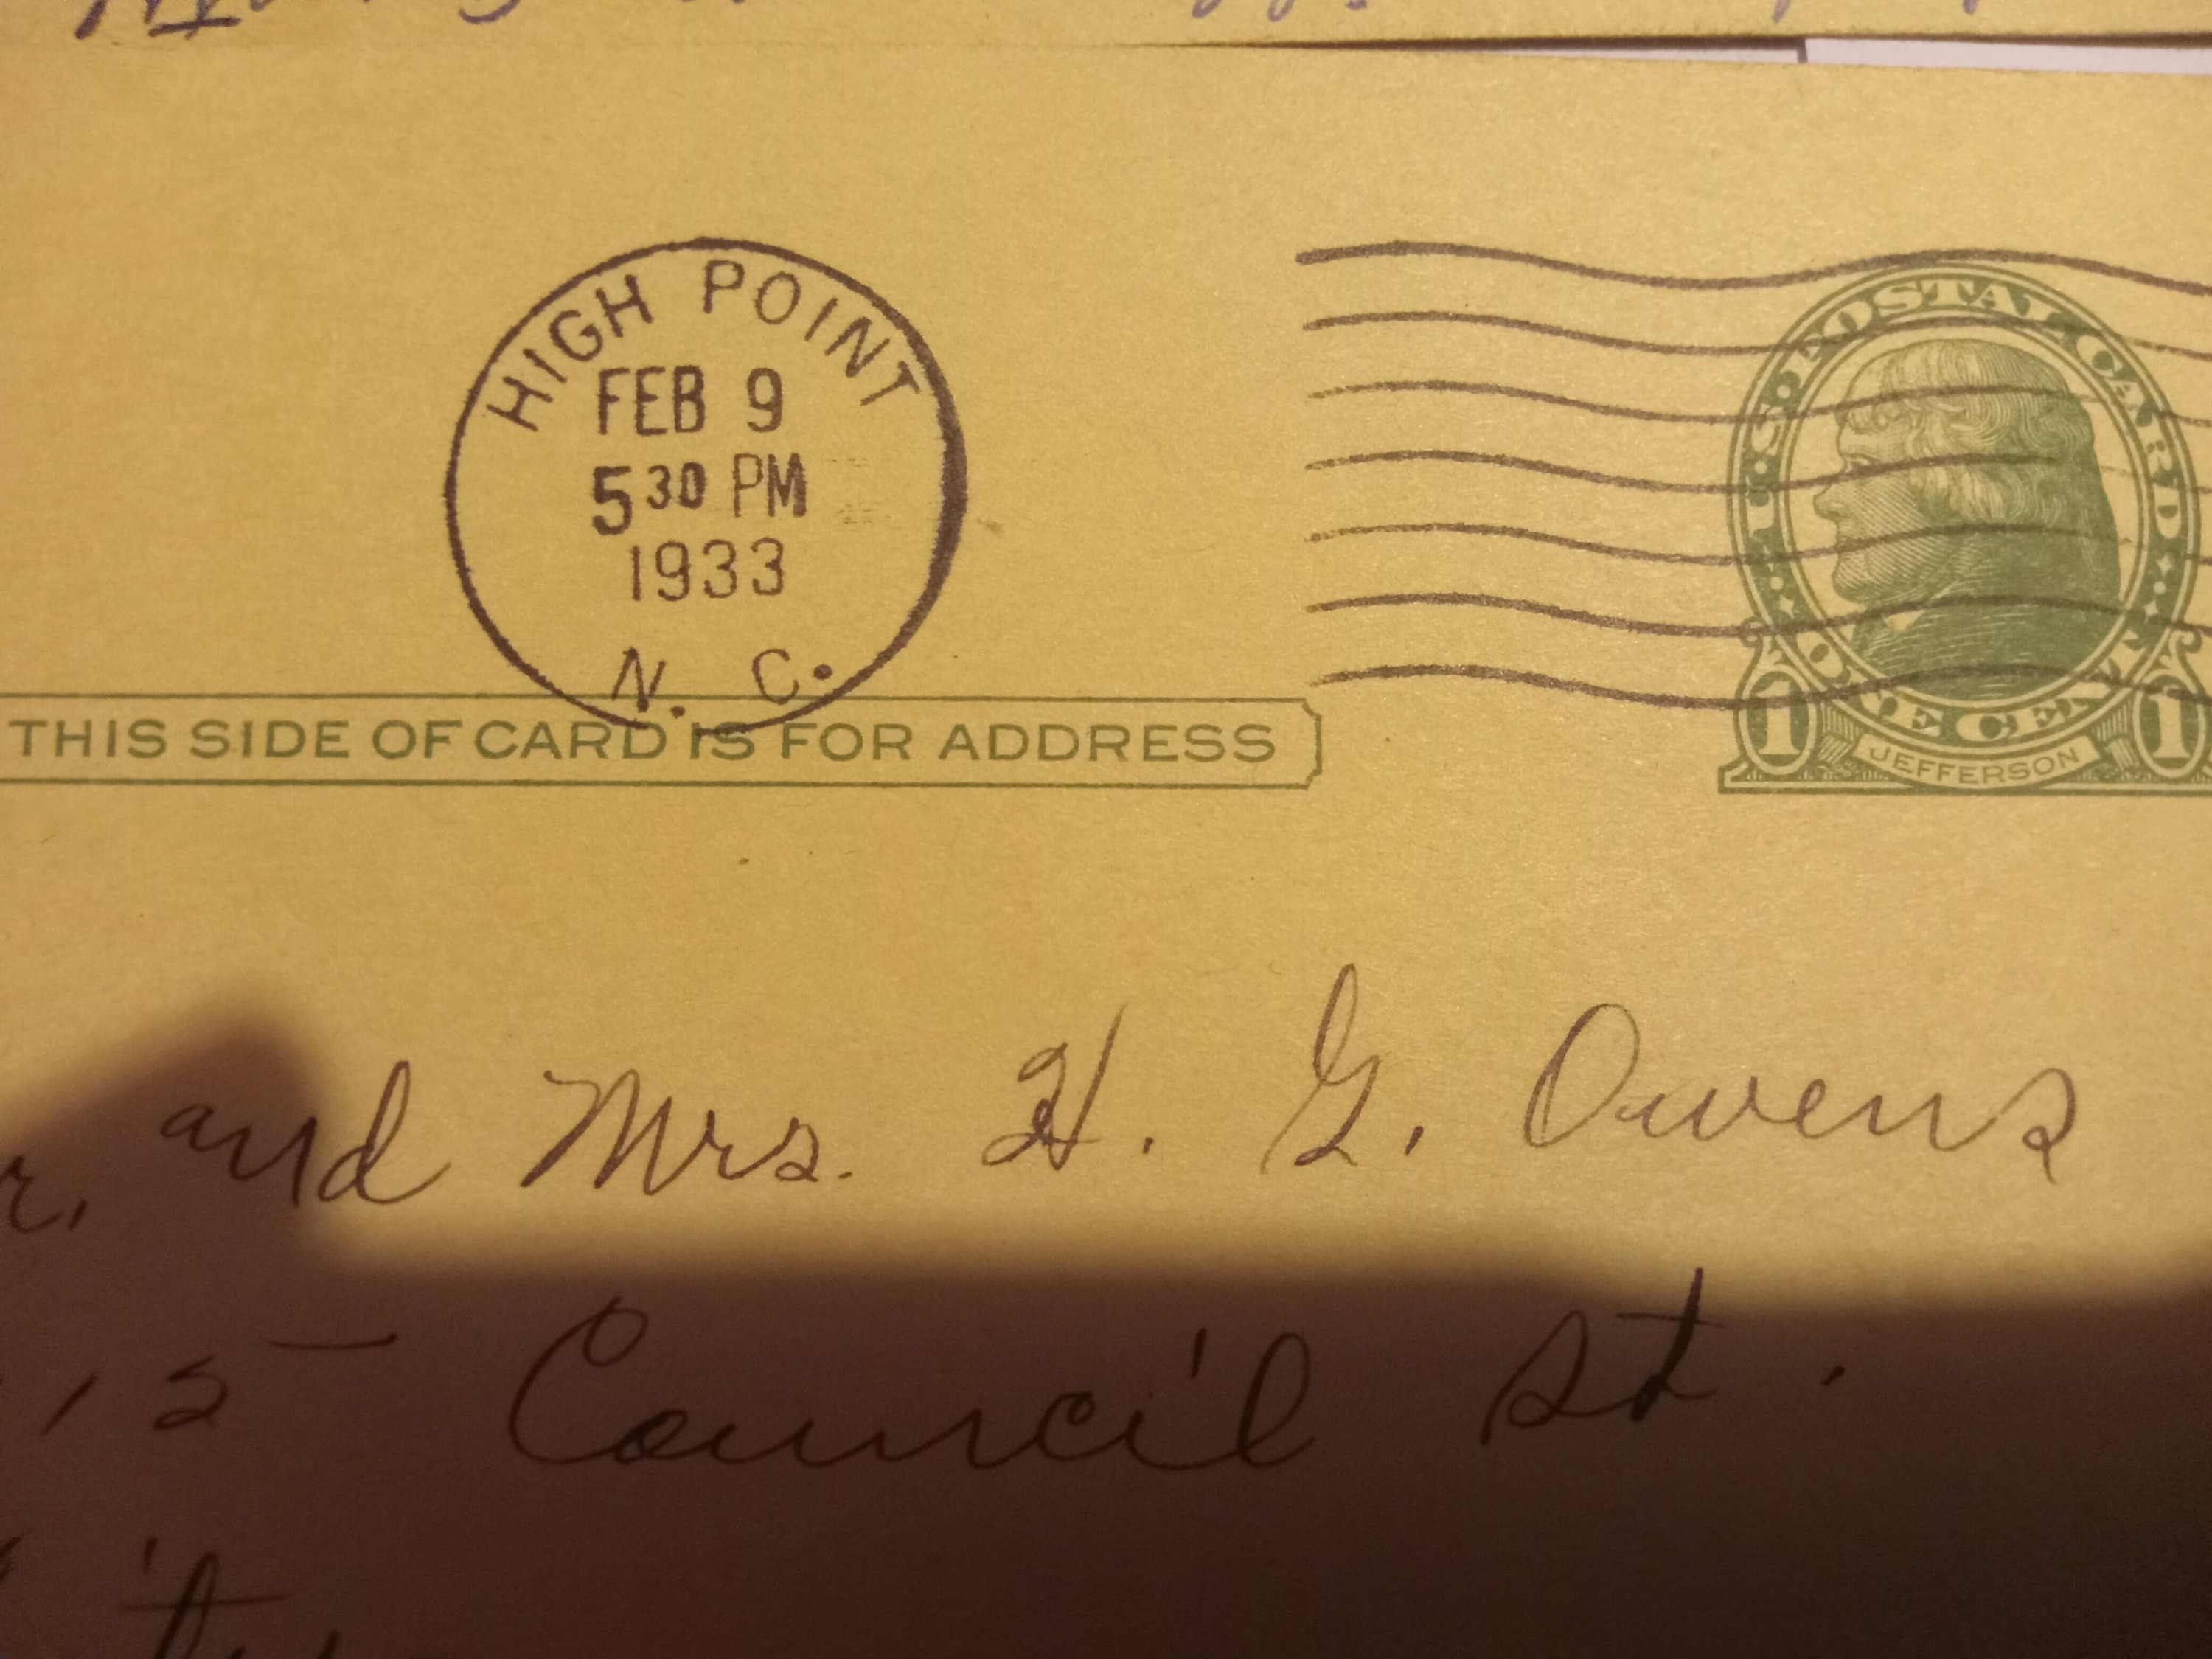 HIGH POINT
FEB 9
5 30 PM
1933
N. C.
U·S· POSTAL CARD
ONE CENT
1 1
JEFFERSON
THIS SIDE OF CARD IS FOR ADDRESS
and Mrs. H. G. Owens
15 Council st.